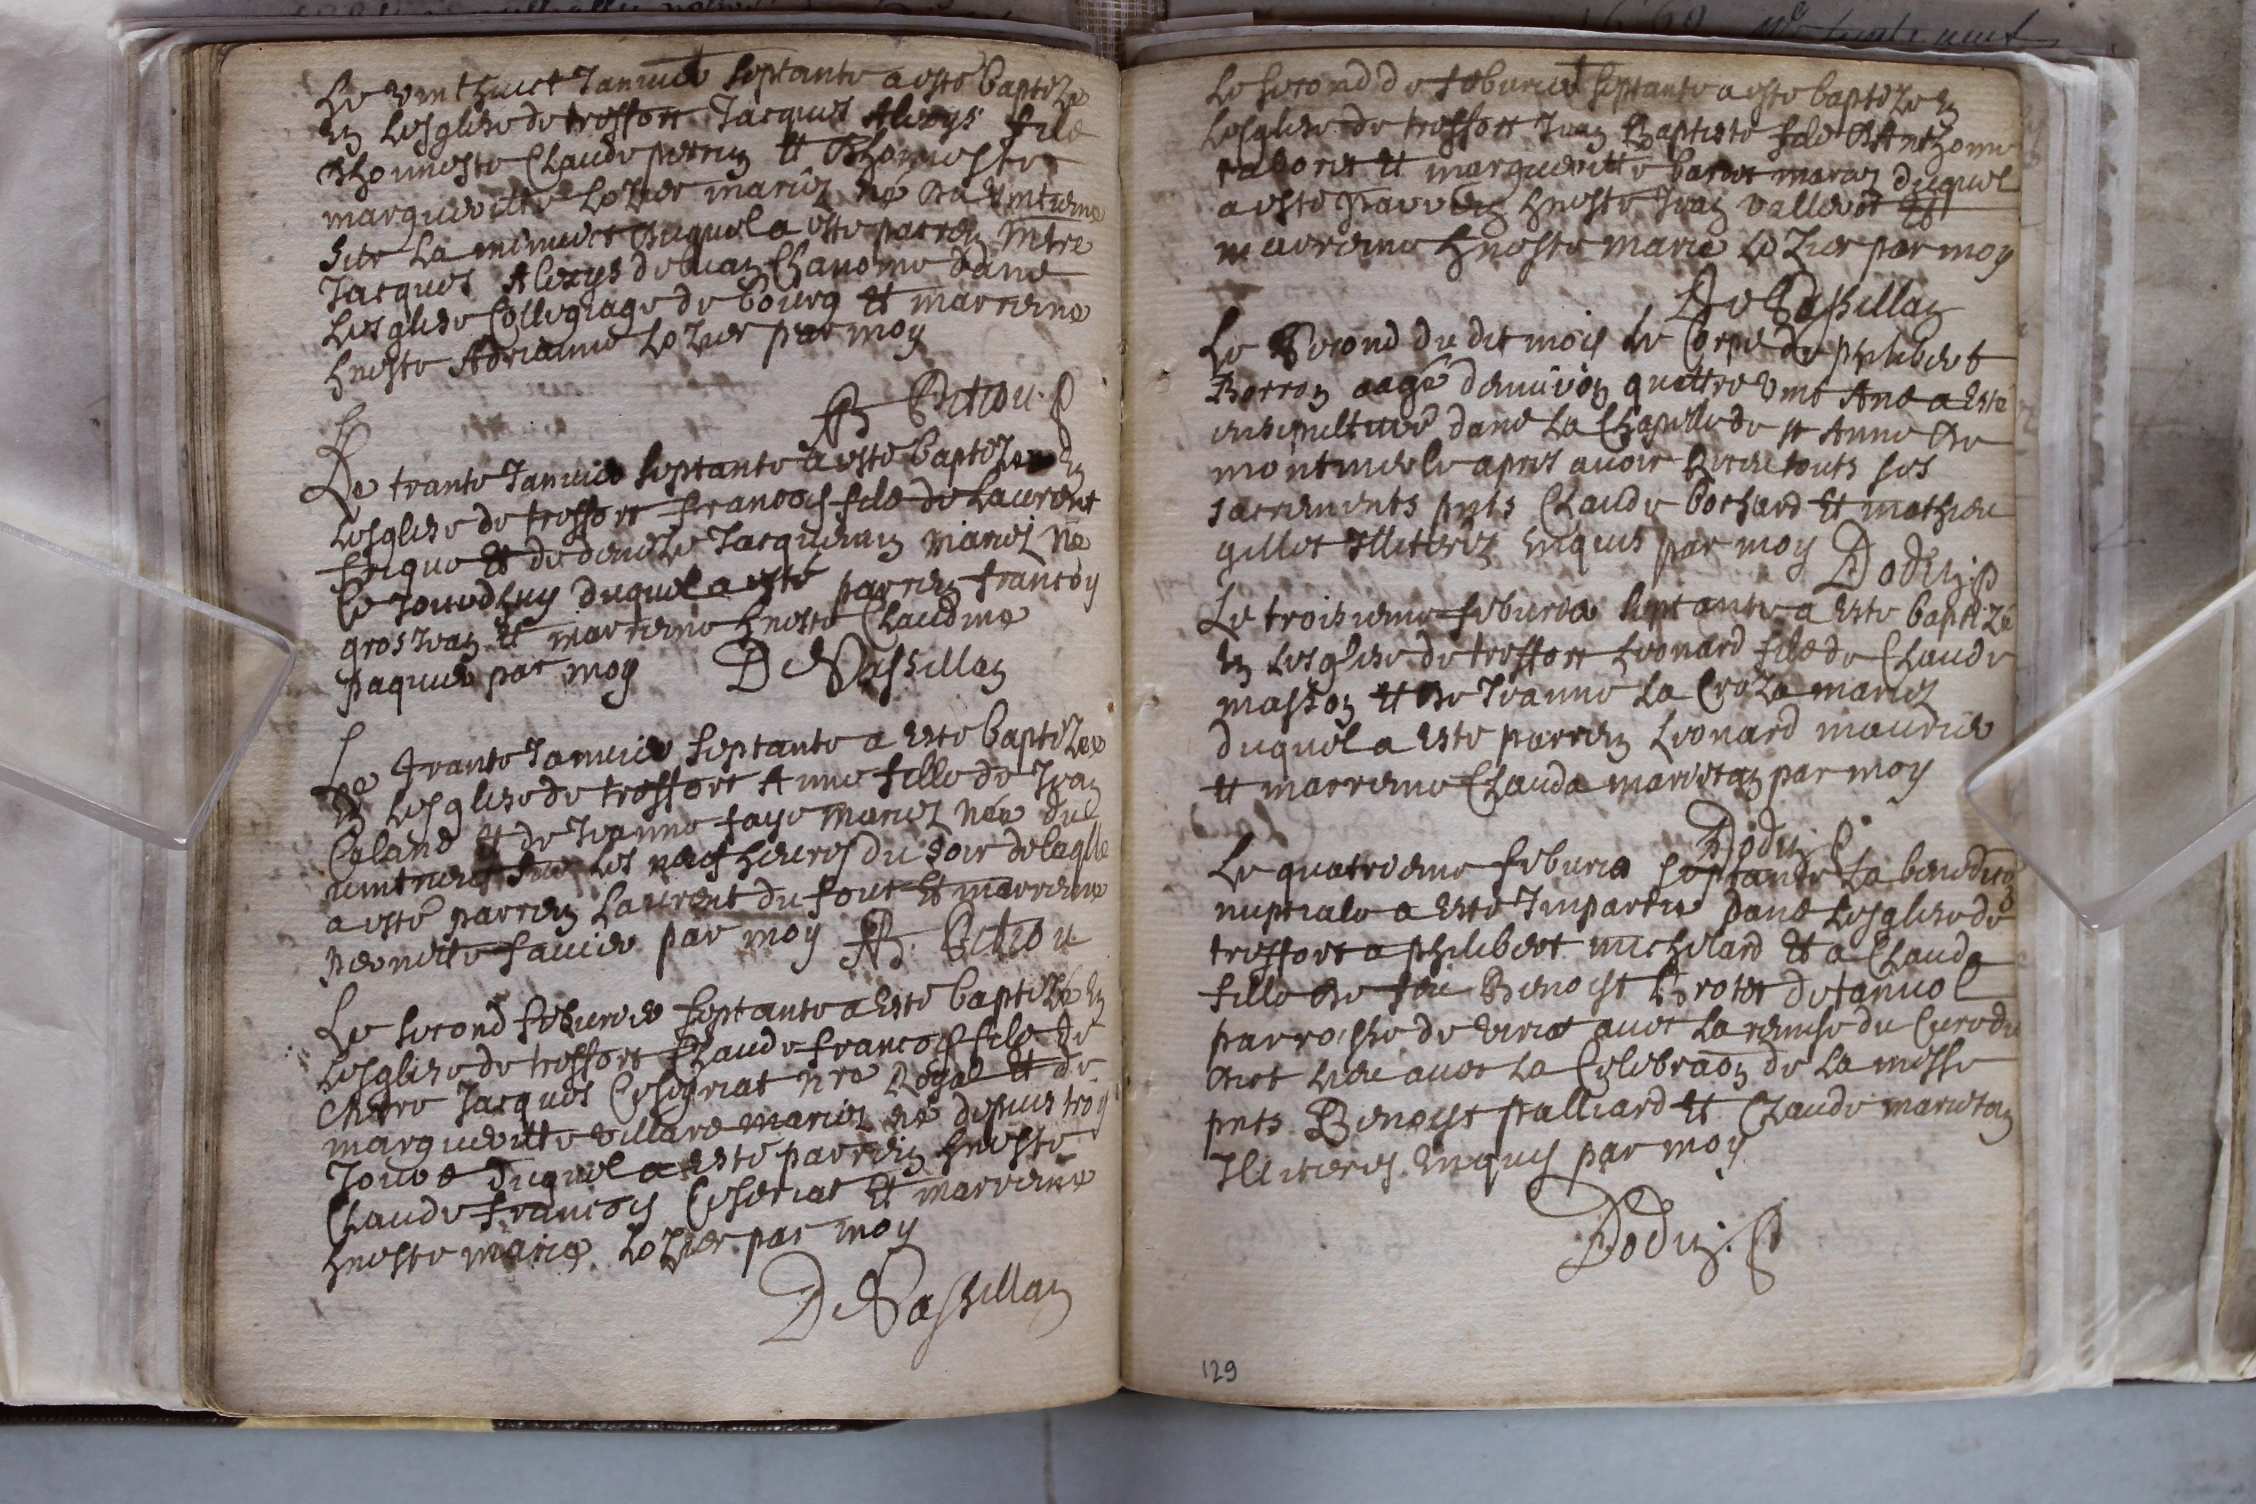 Le vint huict Januier septante a esté baptizé
En lesglize de treffort Jacques Alexys fils
d'honneste Claude perrin et d'honneste
margueritte Lozier mariez né du vintieme
sur la minuict duquel a esté parrein mtre
Jacques Alexys deluan Chanoine dans
lesglize Collegiage de bourg et marreine
hneste Adrianne Lozier par moy
Le trante Januier septante a esté baptizé en
lesglize de treffort francois fils de Laurent
et de denize Jacquemin mariez né
Ce Jourdhuy duquel a esté parrein francoy
grosJean et marreine hneste Claudine
paquier par moy De Vassillan
Le trante Januier septante a esté baptizée
En lesglize de treffort Anne fille de Jean
Coland et de Jeanne faye mariez née du
vintneuf sur les neuf heures du soir de laqlle
a esté parrein Laurent du four et marreine
pernette faucier par moy
Le second feburier septante a esté baptizé en
lesglize de treffort Claude francois fils de
Mtre Jacques Ceseyriat nre Royal et de
margueritte villars mariez né depuis troy
Jours duquel a esté parrein hneste
Claude francois Ceseriat et marreine
hneste marie Lozier par moy
De Vassillan
Le second de feburier septante a esté baptizé en
lesglize de treffort Jean Baptiste fils d'Anthoine
raboret et margueritte mariez duquel
a esté parrein hneste Jean vallerot et
marreine hneste marie Lozier par moy
De Vassillan
Le second du dit mois le Corps de philibert
Borron aagé denuiron quattre vint Ans a esté
ensepulturé dans la Chapelle de st Anne de
apres auoir receu touts ses
sacrements pnts Claude bochard et mathieu
gillet Illiterez Enquis par moy Dodin p
Le troisieme feburier septante a esté baptizé
En lesglize de treffort Leonard fils de Claude
masson et de Jeanne La Croza mariez
duquel a esté parrein Leonard maurier
et marreine Clauda marietan par moy
Dodin p
Le quatrieme feburier septante la benedition
nuptiale a esté Impartie dans lesglize de
treffort a philibert michelard et a Clauda
fille de feu Benoist de
parroisse de auec la remise du Cure du
dict lieu auec la Celebraon de la messe
pnts Benoist palliard et Claude marietan
Illiteres Enquis par moy
Dodin p
129